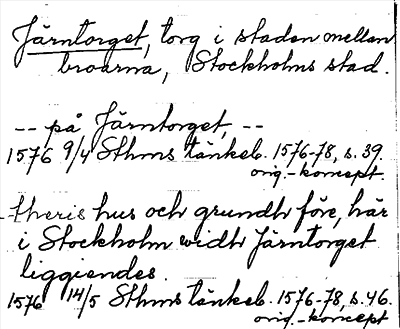 Järntorget, torg i staden mellan
broarna, Stockholms stad.
-- på Järntorget, --
1576 9/4 Sthms tänkeb. 1576-78, s. 39.
orig.-koncept.
theris hus och grundh före, här
i Stockholm widh Järntorget
liggiendes.
1576 14/5 Sthms tänkeb. 1576-78, s. 46.
orig.-koncept